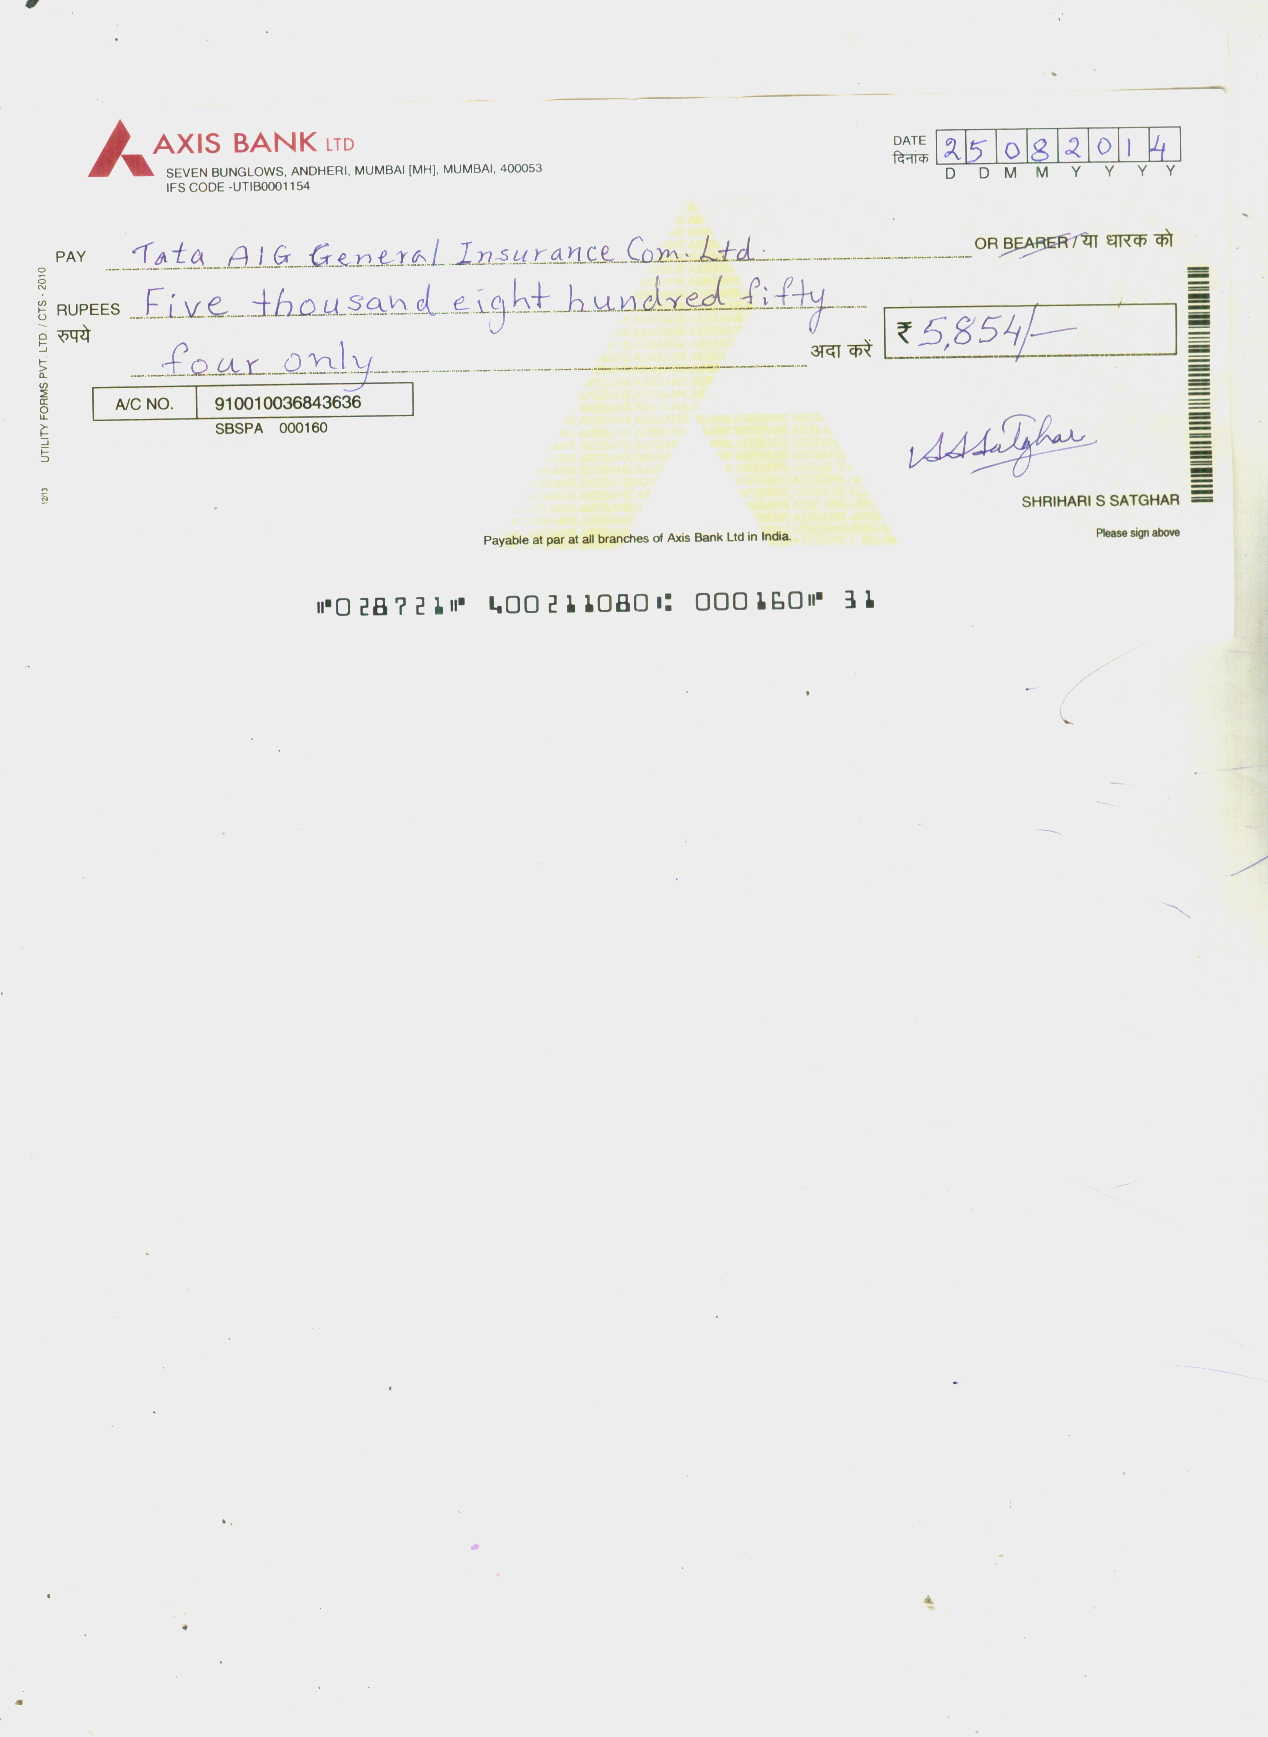 AXIS BANK LTD
SEVEN BUNGLOWS, ANDHERI, MUMBAI [MH], MUMBAI, 400053
IFS CODE -UTIB0001154
DATE
दिनांक
2 5 0 8 2 0 1 4
D D M M Y Y Y Y
PAY Tata AIG General Insurance Com. Ltd. OR BEARER / या धारक को
RUPEES Five thousand eight hundred fifty
रुपये four only अदा करें ₹ 5,854/-
A/C NO. 910010036843636
SBSPA 000160
SSSatghar
SHRIHARI S SATGHAR
Please sign above
Payable at par at all branches of Axis Bank Ltd in India.
UTILITY FORMS PVT. LTD / CTS - 2010
12/13
⑈028721⑈ 400211080⑆ 000160⑈ 31